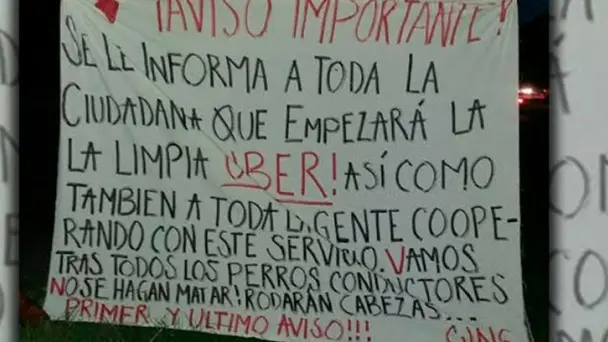 ¡AVISO IMPORTANTE!
SE LE INFORMA A TODA LA
CIUDADANA QUE EMPEZARÁ LA
LA LIMPIA UBER! ASÍ COMO
TAMBIEN A TODA LA GENTE COOPE-
RANDO CON ESTE SERVICIO. VAMOS
TRAS TODOS LOS PERROS CONDUCTORES
NO SE HAGAN MATAR! RODARÁN CABEZAS....
PRIMER Y ULTIMO AVISO!!! CJNG